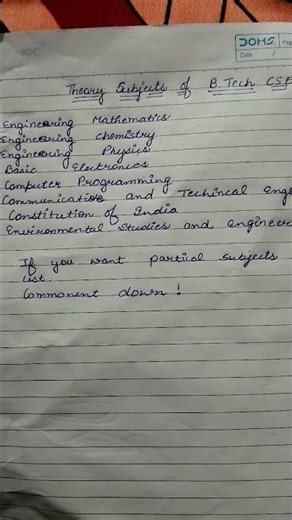 DOMS
Date /
Theory Subjects of B.Tech CSE
Engineering Mathematics
Engineering chemistry
Engineering Physics
Basic Electronics
Computer Programming
Communication and Techincal Eng
Constitution of India
Environmental Studies and engineer
If you want partical subjects
list.
Commonent down !